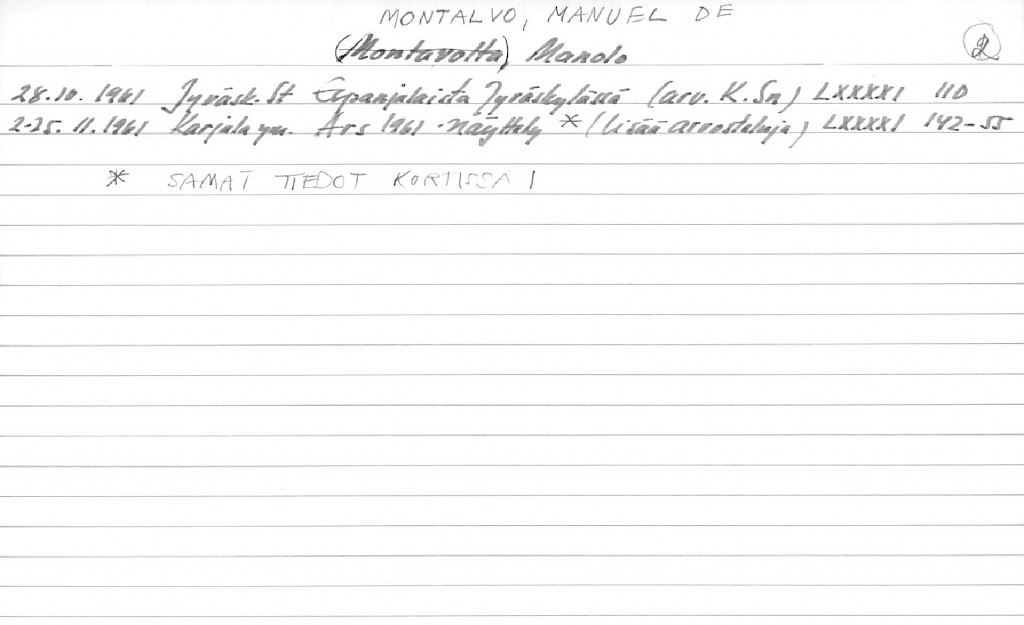 MONTALVO, MANUEL DE
(Montavolta) Manolo
2
28.10. 1961 Jyväsk. St Espanjalaista Jyväskylässä (arv. K. Sn) LXXXXI 110
2-25. 11. 1961 Karjala ym. Ars 1961 -näyttely * (lisää arvosteluja) LXXXXI 142-55
* SAMAT TIEDOT KORTISSA 1